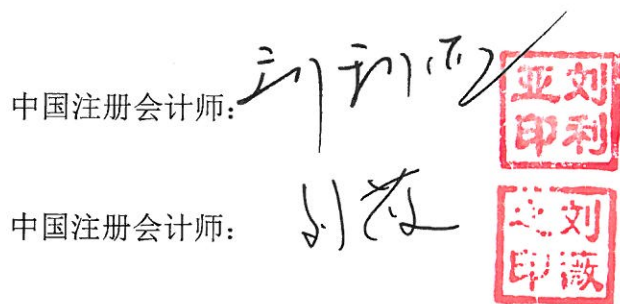 中国注册会计师：刘利亚
刘利亚印
中国注册会计师：刘薇
刘薇之印